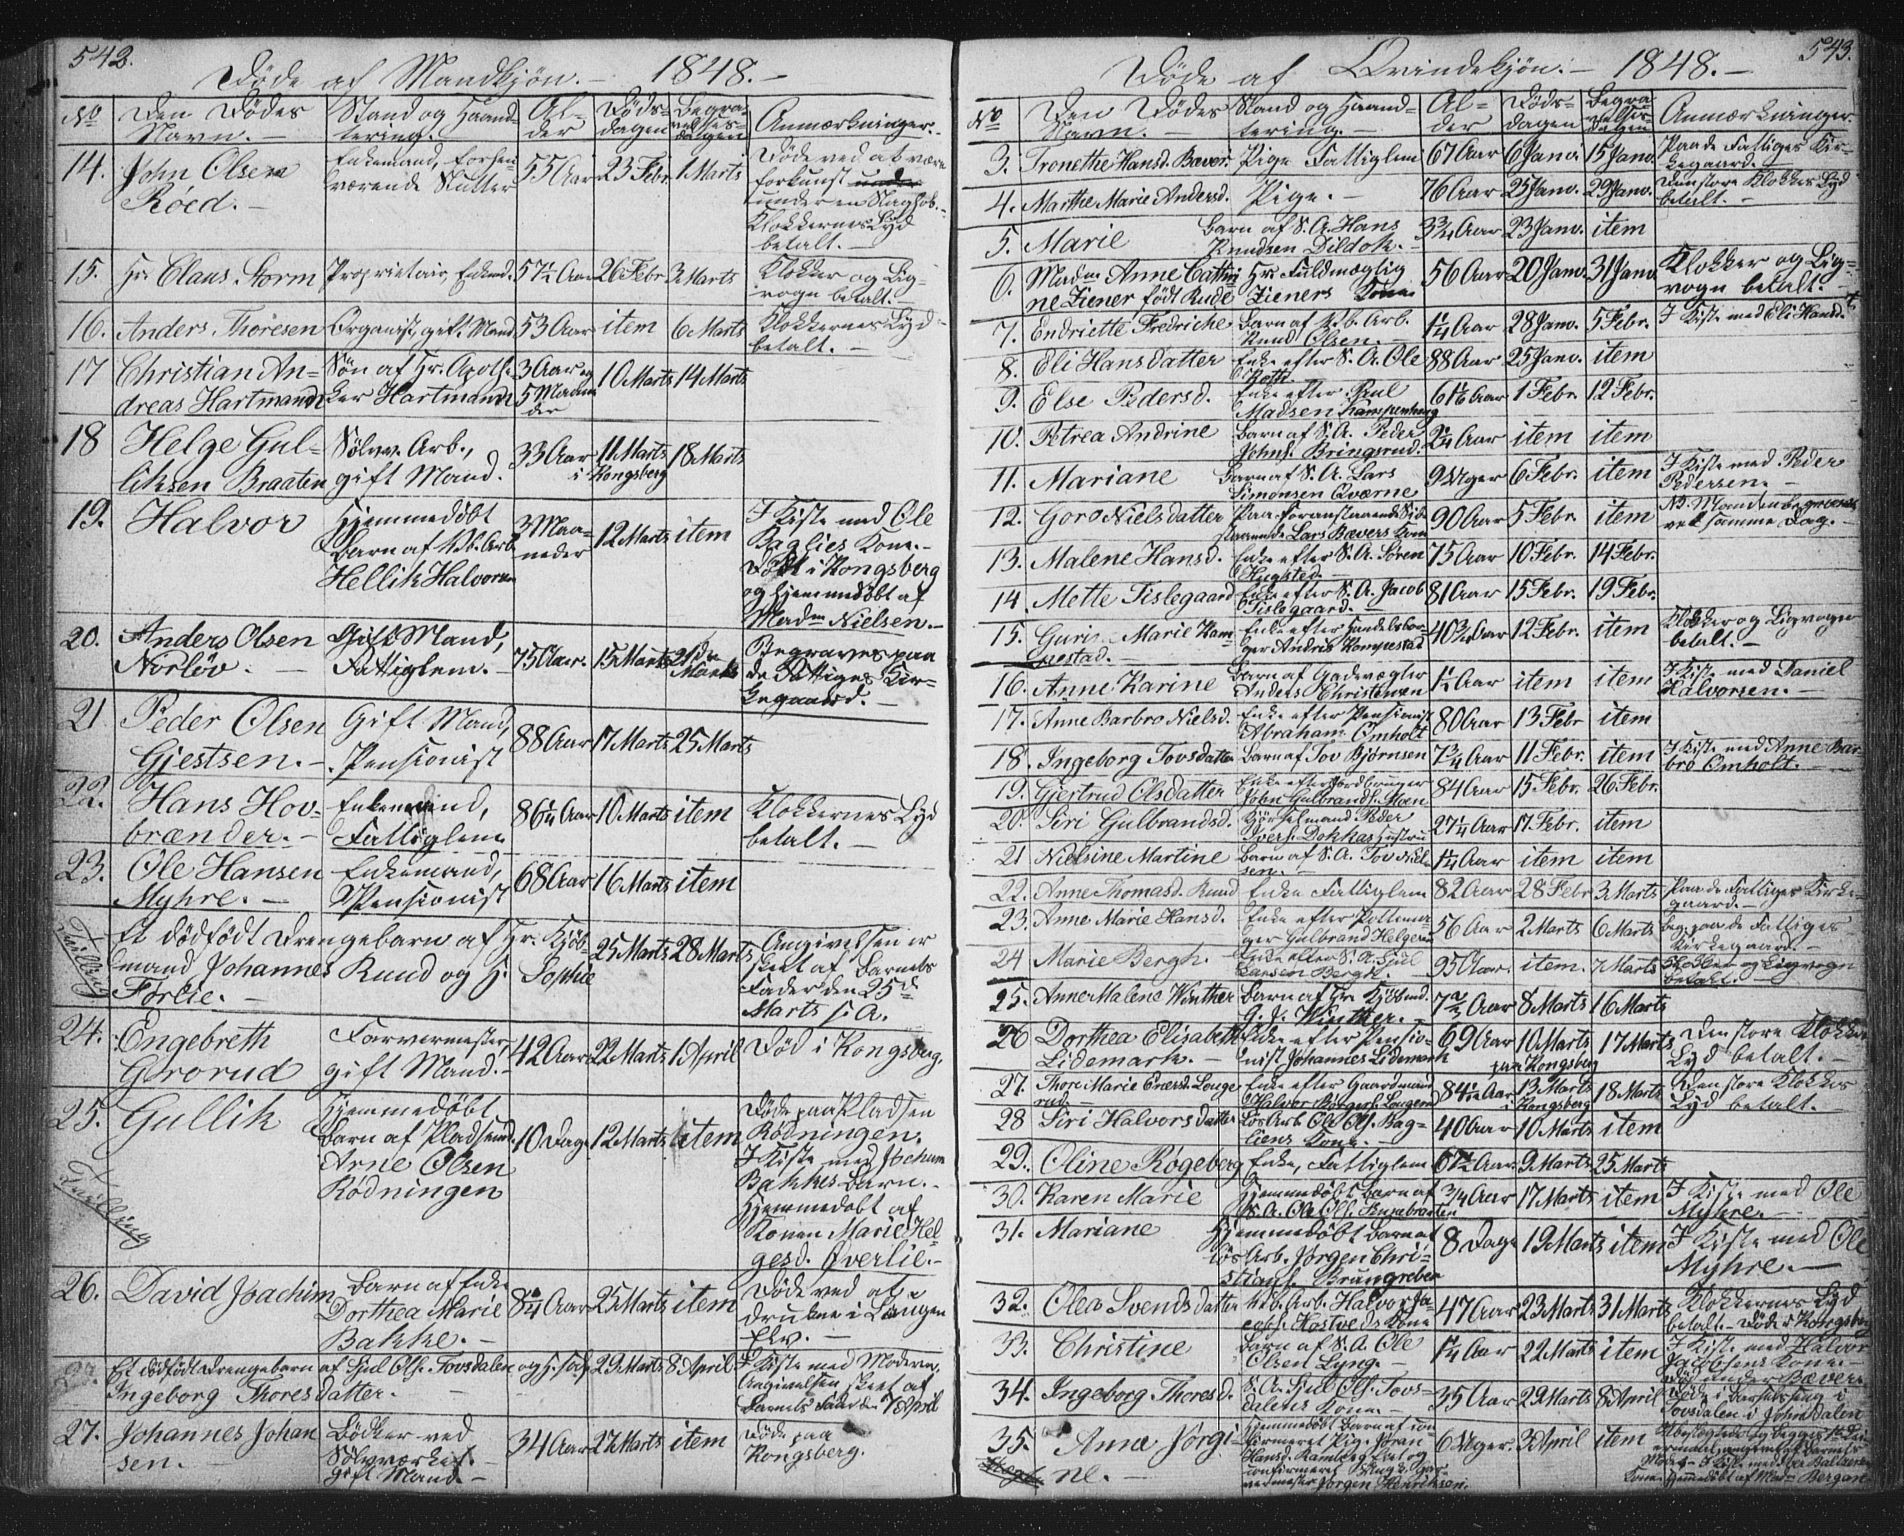 542.
Døde af Mandkjøn. – 1848. –
No
Den Dødes Navn.
Stand og Haandtering.
Alder
Dødsdagen
Begravelsesdagen
Anmærkninger.
14. John Olsen Røed. – Enkemand, forhenværende Slutter 55 Aar 23 Febr. 1 Marts Døde ved at være
forkunst under en Slagsob.
Klokkernes Lyd
betalt. –
15. Hr. Claus Storm Proprietair, Enkemd. 57½ Aar 26 Febr. 3 Marts Klokker og Lig-
vogn betalt. –
16. Anders Thoresen Organist, gift Mand 53 Aar item 6 Marts Klokkernes Lyd
betalt. –
17 Christian An-
dreas Hartmann Søn af Hr. Apothe-
ker Hartmann 3 Aar og
5 Maane
der 10 Marts 14 Marts
18 Helge Gul-
liksen Braaten Sølvv. Arb.,
gift Mand. 33 Aar 11 Marts
i Kongsberg 18 Marts
19. Halvor Hjemmedøbt
Barn af Vb. Arb.
Hellik Halvorsen 3 Maa-
neder 12 Marts item I Kiste med Ole
Baglies Kone. –
Født i Kongsberg
og hjemmedøbt af
Madm Nielsen. –
20. Anders Olsen
Norløv. – Gift Mand,
Fattiglem. – 75 Aar. 15 Marts 21de
Marts Begraves paa
de Fattiges Kir-
kegaard. –
21 Peder Olsen
Gjestsen. – Gift Mand,
Pensionist 88 Aar 17 Marts 25 Marts
22. Hans Hov-
brænder. – Enkemand,
Fattiglem 86¼ Aar 10 Marts item Klokkernes Lyd
betalt. –
23. Ole Hansen
Myhre. – Enkemand,
Pensionist 68 Aar 16 Marts item
Et dødfødt Drengebarn af Hr. Kjøb-
mand Johannes Kund og H. Sophie
Førlie. – 25 Marts 28 Marts Angivelsen er
skeet af Barnets
Fader den 25de
Marts s. A.
24. Engebreth
Grorud Farvermester,
gift Mand. – 42 Aar 22 Marts 1 April Død i Kongsberg.
25. Gullik Hjemmedøbt
Barn af Pladsemd.
Arne Olsen
Rødningen 10 Dage 12 Marts item Døde paa Pladsen
Rødningen.
I Kiste med Jochum
Bakkes Barn. –
Hjemmedøbt af
Konen Marie Hel-
gesd. Øverlie. –
Tvilling
26. David Joachim Barn af Enke
Dorthea Marie
Bakke. – 8¼ Aar 25 Marts item Døde ved at
drukne i Laagen
Elv. –
Et dødfødt Drengebarn af Hjul Ols. Tovsdalen og H.
Ingeborg Thoresdatter. – 29 Marts 8 April I Kiste med Moderen,
Angivelsen skeet af
Barnets Fader den 7 April
27. Johannes Johan
sen. – Bødker ved
Sølvværket
gift Mand – 34 Aar 27 Marts item Døde paa
Kongsberg.
543.
Døde af Qvindekjøn. – 1848. –
No
Den Dødes Navn.
Stand og Haandtering. –
Alder
Dødsdagen
Begravelsesdagen
Anmærkninger.
3. Tronethe Hansd. Bæver. Pige Fattiglem 67 Aar 6 Janv. 15 Janv. Paa de Fattiges Kir-
kegaard. –
4. Marthe Marie Andersd. Pige. – 76 Aar 25 Janv. 29 Janv. Den store Klokkes Lyd
betalt. –
5. Marie Barn af S. A. Hans
Knudsen Dildok. – 3¾ Aar 23 Janv. item
6. Madm Anne Cathri
ne Ziener født Rude Hr. Fuldmægtig
Zieners Kone 56 Aar 20 Janv. 31 Janv. Klokker og Lig-
vogn betalt. –
7. Endriette Fredriche Barn af Vb. Arb.
Knud Olsen. – 1¼ Aar 28 Janv. 5 Febr. I Kiste med Eli Hansd.
8. Eli Hansdatter Enke efter S. A. Ole
Roth. 88 Aar 25 Janv. item
9. Else Pedersd. Enke efter Poul
Madsen Kampenhoug 61⅙ Aar 1 Febr. 12 Febr.
10. Petrea Andrine Barn af S. A. Peder
Johns. Bringsrud. 2¼ Aar item item
11. Mariane Barn af S. A. Lars
Simonsen Qværne 9 Uger 6 Febr. item I Kiste med Peder
Pedersen. –
12. Goro Nielsdatter Paa foranstaaende Side
staaende Lars Bævers Kone 90 Aar 5 Febr. item NB. Manden begravet
ved samme Dag. –
13. Malene Hansd. Enke efter S. A. Søren
Hugsted. – 75 Aar 10 Febr. 14 Febr.
14 Mette Tislegaard Enke efter S. A. Jacob
Tislegaard. – 81 Aar 15 Febr. 19 Febr.
15. Guri Marie Kom
pestad. – Enke efter Handelsbor-
ger Andrus Kompestad 40¾ Aar 12 Febr. item Klokker og Ligvogn
betalt. –
16. Anne Karine Barn af Gadevægter
Anders Christensen 1½ Aar item item I Kiste med Daniel
Halvorsen. –
17. Anne Barbro Nielsd. Enke efter Pensionist
Abraham Omholt 80 Aar 13 Febr item
18. Ingeborg Tovsdatter Barn af Tov Bjørnsen 7¾ Aar 11 Febr. item I Kiste med Anne Bar-
bro Omholt. –
19. Gjertrud Olsdatter Enke efter Jordbruger
John Gulbrands. Moen 84 Aar 15 Febr. 26 Febr.
20. Siri Gulbrandsd. Kjørselmand Peder
Ivers. Dokkas Hustru 27¼ Aar 17 Febr. item
21 Nielsine Martine Barn af S. A. Tov Niel
sen. – 1¼ Aar item item
22. Anne Thomasd. Rund Enke Fattiglem 82 Aar 28 Febr 3 Marts Paa de Fattiges Kirke-
gaard. –
23. Anne Marie Hansd. Enke efter Pottema-
ger Gulbrand Helgesen 56 Aar 2 Marts 6 Marts beg. paa de Fattiges
Kirkegaard. –
24 Marie Bergh. Enke efter S. A. Hjul
Larsen Bergh. 95 Aar. item. 7 Marts Klokker og Ligvogn
betalt. –
25. Anne Malene Winther Barn af Hr. Kjøbmd.
G. J. Winther. – 7½ Aar 8 Marts 16 Marts
26 Dorthea Elisabeth
Lidemark. – Enke efter Pensio-
nist Johannes Lidemark 69 Aar 10 Marts
paa Kongsberg 17 Marts Den store Klokkes
Lyd betalt. –
27. Thore Marie Enersd. Lange
rud – Enke efter Gaardmand
Halvor Børgers. Langerud 84½ Aar 13 Marts
i Kongsberg 18 Marts Den store Klokkes
Lyd betalt. –
28 Siri Halvorsdatter Løs Arb. Ole Ols. Bag-
liens Kone. – 40 Aar 10 Marts item
29. Oline Røgeberg Enke, Fattiglem 67½ Aar 9 Marts 25 Marts
30. Karen Marie Hjemmedøbt Barn af
S. A. Ole Ols. ¾ Aar 17 Marts item I Kiste med Ole
Myhre. –
31. Mariane Hjemmedøbt Barn af
Løs Arb. Jørgen Chri-
stians. Brungreben 8 Dage 19 Marts item I Kiste med Ole
Myhre. –
32. Olea Svendsdatter Vb. Arb. Halvor Ja-
cobs. Hostveds Kone 47 Aar 23 Marts 31 Marts Klokkernes Lyd
betalt. – Døde i Kongsberg
33. Christine Barn af S. A. Ole
Olsen Lyng. – 1¼ Aar 22 Marts item I Kiste med Halvor
Jacobsens Kone. –
Død under Bæveren
34. Ingeborg Thoresd. S. A. Hjul Ols. Tovs-
dalens Kone – 35 Aar 29 Marts 8 April Døde i Barselseng i
Tovsdalen i Johnsdalen
35. Anne Jørgi-
ne. – Hjemmedøbt Barn af con-
firmeret Pige Jøran
Hansd. Ramberg Eiet og
confirmeret Ungk. Gar-
vermester Jørgen Henriksen. 6 Uger. 3 April item
I Kiste med Balzersens
Kone. Hjemmedøbt af Madm Bergan